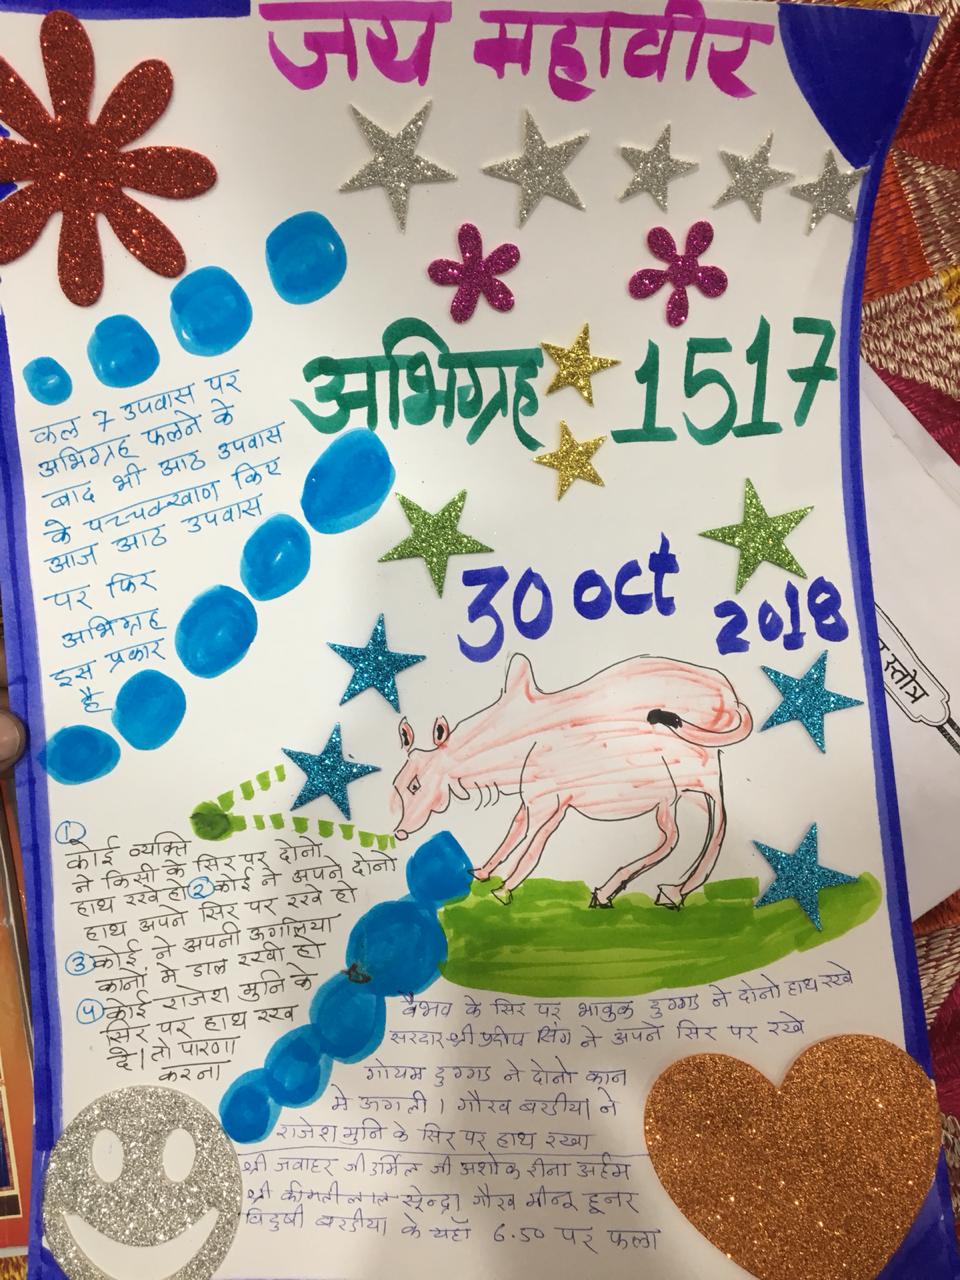 जय महावीर
अभिग्रह 1517
30 oct 2018
कल 7 उपवास पर
अभिग्रह फलने के
बाद भी आठ उपवास
के पच्चक्खाण किए
आज आठ उपवास
पर फिर
अभिग्रह
इस प्रकार
है
1
कोई व्यक्ति
ने किसी के सिर पर दोनो
हाथ रखे हो 2 कोई ने अपने दोनो
हाथ अपने सिर पर रखे हो
3 कोई ने अपनी ऊगलिया
कानों मे डाल रखी हो
4 कोई राजेश मुनि के
सिर पर हाथ रख
दे। तो पारणा
करना
वैभव के सिर पर भावुक डुग्गड ने दोनो हाथ रखे
सरदार श्री प्रदीप सिंग ने अपने सिर पर रखे
गोयम डुग्गड ने दोनो कान
मे ऊगली। गौरव बरडीया ने
राजेश मुनि के सिर पर हाथ रखा
श्री जवाहर जी उर्मिल जी अशोक रीना अर्हम
श्री कीमती लाल सुरेन्द्रा गौरव मीनू हूनर
विदुषी बरडीया के यहाँ 6.50 पर फला
स्तोत्र